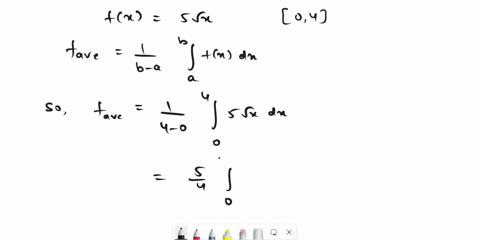 f(x) = 5√x [0,4]
fave = 1/(b-a) ∫ₐᵇ f(x) dx
so, fave = 1/(4-0) ∫₀⁴ 5√x dx
= 5/4 ∫₀